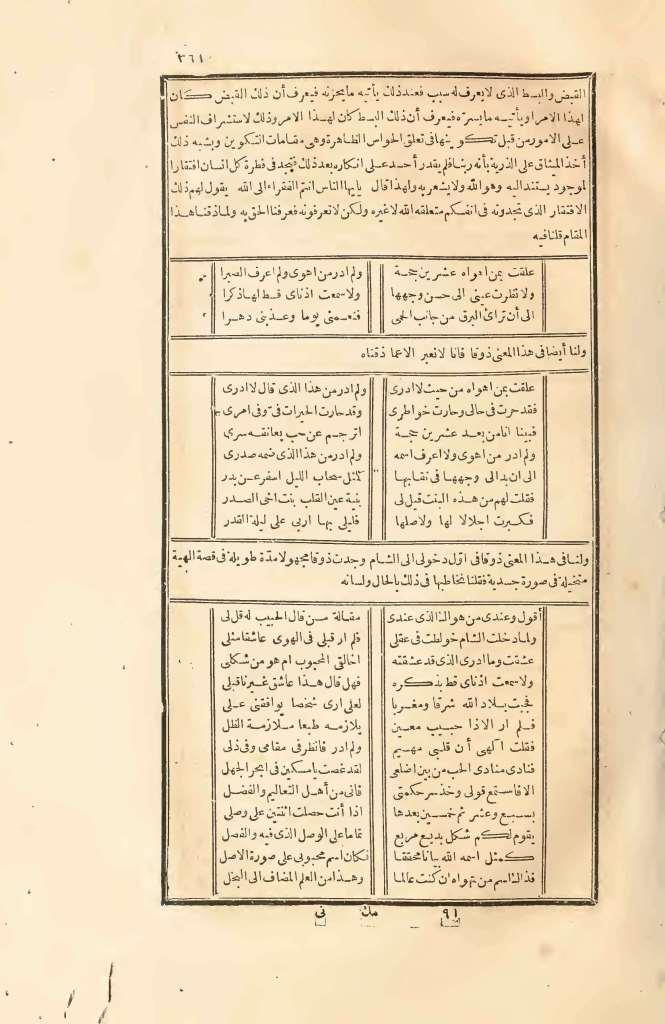 ٣٦١
القبض والبسط الذى لا يعرف له سبب فعند ذلك يأتيه ما يحزنه فيعرف أن ذلك القبض كان
لهذا الامر او يأتيه ما يسره فيعرف أن ذلك البسط كان لهذا الامر وذلك لاستشراف النفس
على الامور من قبل تكوينها فى تعلق الحواس الظاهرة وهى مقامات التكوين ويشبه ذلك
أخذ الميثاق على الذرية بأنه ربنا فلم يقدر أحد على انكاره بعد ذلك فيجد فى فطرة كل انسان افتقارا
لموجود يستند اليه وهو الله ولا يشعر به ولهذا قال يا يها الناس انتم الفقراء الى الله يقول لهم ذلك
الافتقار الذى تجدونه فى انفسكم متعلقه الله لا غيره ولكن لا تعرفونه فعرفنا الحق به ولما ذقنا هذا
المقام قلنا فيه
علقت بمن اهواه عشرين حجة ولم ادر من اهوى ولم اعرف الصبرا
ولا نظرت عينى الى حسن وجهها ولا سمعت اذناى قط لها ذكرا
الى أن تراءى البرق من جانب الحمى فنعمنى يوما وعذبنى دهرا
ولنا أيضا فى هذا المعنى ذوقا فانا لا نعبر الا عما ذقناه
علقت بمن اهواه من حيث لا ادرى ولم ادر من هذا الذى قال لا ادرى
فقد حرت فى حالى وحارت خواطرى وقد حارت الحيرات فى وفى امرى
فبينا انا من بعد عشرين حجة اترجم عن حب يعانقه سرى
ولم ادر من اهوى ولا اعرف اسمه ولم ادر من هذا الذى ضمه صدرى
الى ان بدا لى وجهها فى نقابها كمثل سحاب الليل اسفر عن بدر
فقلت لهم من هذه البنت قيل لى بنية عين القلب بنت اخى الصدر
فكبرت اجلالا لها ولاصلها فليلى بها اربى على ليلة القدر
ولنا فى هذا المعنى ذوقا فى اول دخولى الى الشام وجدت ذوقا مجهولا مدة طويلة فى قصة الهية
متخيلة فى صورة جسدية فقلنا نخاطبها فى ذلك بالحال ولسانه
أقول وعندى من هواك الذى عندى مقالة من قال الحبيب له قل لى
ولما دخلت الشام خولطت فى عقلى فلم ار قبلى فى الهوى عاشقا مثلى
عشقت وما ادرى الذى قد عشقته اخالقى المحبوب ام هو من شكلى
ولا سمعت اذناى قط بذكره فهل قال هذا عاشق غيرنا قبلى
فجبت بلاد الله شرقا ومغربا لعلى ارى شخصا يوافقنى على
فلم ار الا ذا حبيب معين يلازمه طبعا ملازمة الظل
فقلت الهى أن قلبى مهيم ولم ادر فانظر فى مقامى وفى ذلى
فنادى منادى الحب من بين اضلعى لقد غصت يا مسكين فى ابحر الجهل
الا فاستمع قولى وخذ سر حكمتى فانى من أهل التعاليم والفضل
بسبع وعشر ثم خمسين بعدها اذا أنت حصلت اثنتين على وصلى
يقوم لكم شكل بديع مربع تماما على الوصل الذى فيه والفصل
كمثل اسمه الله بانا محققا فكان اسم محبوبى على صورة الاصل
فذاك اسم من تهواه ان كنت عالما وهذا من العلم المضاف الى البخل
٩١ مك نى